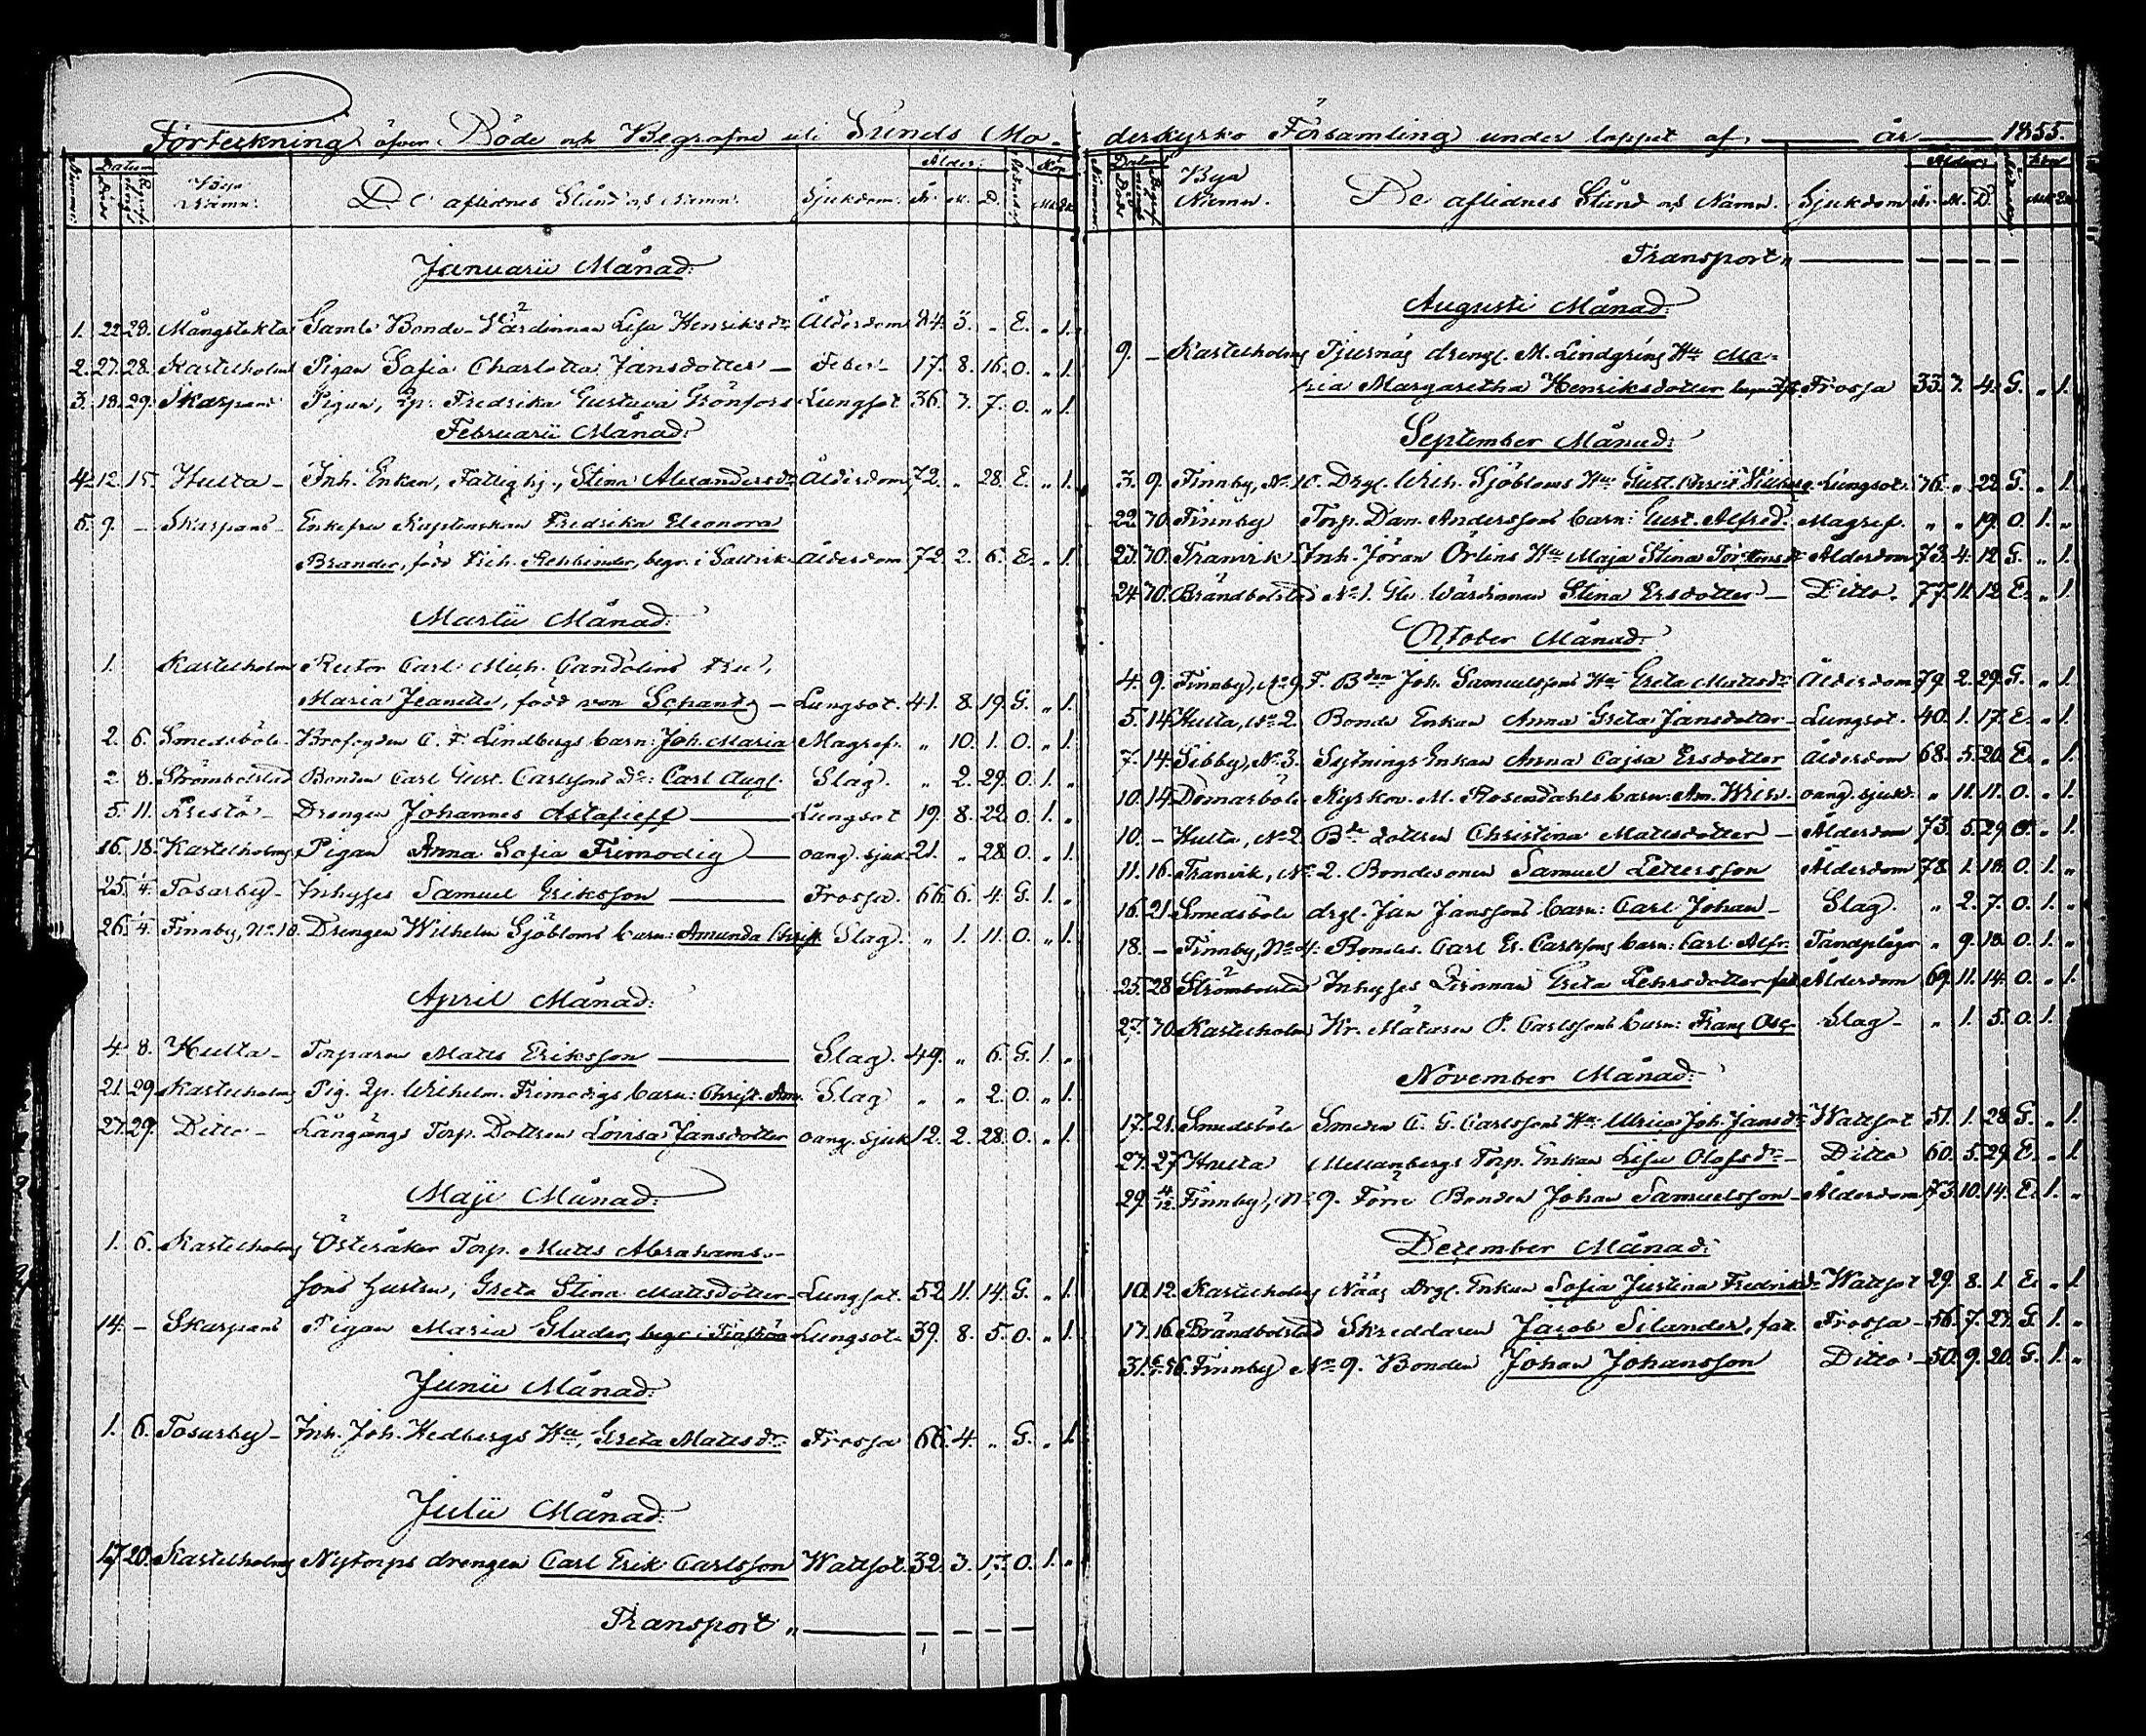 Förteckning öfver Döde och Begrafne uti Sunds Mo-
Datum Ålder: Kön
Bya Namn. De aflidnes Stånd och Namn. Sjukdom. År. M. D. Mk. Qk.
Januarii Månad:
1. 22. 28. Mångstekta Gamla Bonde-Värdinnan Lisa Henriksdr Ålderdom 84. 3. „ E. „ 1.
2. 27. 28. Kastelholm Pigan Sofia Charlotta Jansdotter — Feber 17. 8. 16. O. „ 1.
3. 18. 29. Skarpans Pigan, Qp. Fredrika Gustava Grönfors Lungsot 36. 3. 7. O. „ 1.
Februarii Månad:
4. 12. 15. Hulta — Inh. Enkan, Fattighj., Stina Alexandersdr Ålderdom 72. „ 28. E. „ 1.
5. 9. — Skarpans — Enkefru Kaptenskan Fredrika Eleonora
Brander, född Frih. Rehbinder, begr. i Saltvik Ålderdom 72. 2. 6. E. „ 1.
Martii Månad:
1. Kastelholm Rector Carl Mich. Candolins Fru,
Maria Jeanette, född von Schantz — Lungsot. 41. 8. 19. G. „ 1.
2. 6. Smedsböle Brofogden C. F. Lindbergs barn: Joh. Maria Magref. „ 10. 1. O. „ 1.
2. 8. Strömbolstad Bonden Carl Gust. Carlssons do: Carl Aug. Slag. „ 2. 29. O. 1. „
5. 11. Prestö — Drengen Johannes Astafieff — Lungsot 19. 8. 22. O. 1. „
16. 18. Kastelholms Pigan Anna Sofia Frimodig — oang. sjuk. 21. „ 28. O. „ 1.
25. 1/4. Tosarby — Inhyses Samuel Eriksson — Frossa. 66. 6. 4. G. 1. „
26. 1/4. Finnby, No 10. Drengen Wilhelm Sjöbloms barn: Amanda Christ. Slag. „ 1. 11. O. „ 1.
April Månad:
4. 8. Hulta — Torparen Matts Eriksson — Slag. 49. „ 6. G. 1. „
21. 29. Kastelholms Pig. Qp. Wilhelm. Frimodigs barn: Christ. Am. Slag „ „ 2. O. „ 1.
27. 29. Ditto — Långängs Torp. Dottren Lovisa Jansdotter oang. Sjuk 12. 2. 28. O. „ 1.
Maji Månad:
1. 6. Kastelholms Österåker Torp. Matts Abrahams-
sons hustru, Greta Stina Mattsdotter — Lungsot. 52. 11. 14. G. „ 1.
14. — Skarpans Pigan Maria Glader, begr. i Lungsot 39. 8. 5. O. „ 1.
Junii Månad:
1. 6. Tosarby — Inh. Joh. Hedbergs Hu, Greta Mattsdr Frossa 66. 4. „ G. „ 1.
Julii Månad:
17. 20. Kastelholms Nytorps drengen Carl Erik Carlsson Wattsot. 32. 3. 17. O. 1. „
Transport „ — — — — —
derkyrko Församling under loppet af — år — 1855.
Datum Ålder Kön
Bya Namn. De aflidnes Stånd och Namn. Sjukdom År. M. D. Mk. Qk.
Transport „ — — — — —
Augusti Månad:
9. — Kastelholms Tjernäs drengl. M. Lindgrens Hu Ma-
ria Margaretha Henriksdotter Frossa 33. 7. 4. G. „ 1.
September Månad:
3. 9. Finnby, No 10. Drgl. Wilh. Sjöbloms Hu Gust. Christ. Lungsot. 36. „ 22. G. „ 1.
22. 30. Finnby Torp. Dan. Anderssons barn: Gust. Alfred. Magref. „ „ 19. O. 1. „
23. 30. Tranvik Inh. Jöran Örlins Hu Maja Stina Ålderdom 73. 4. 12. G. „ 1.
24. 30. Brändbolstad No 1. Gla Wärdinnan Stina Ersdotter — Ditto. 77. 11. 12. E. „ 1.
October Månad:
4. 9. Finnby, No 9. F. Bden Joh. Samuelssons Hu Greta Mattsdr Ålderdom 79. 2. 29. G. „ 1.
5. 14. Hulta, No 2. Bonde Enkan Anna Greta Jansdotter — Lungsot. 40. 1. 17. E. „ 1.
7. 14. Sibby, No 3. Sytnings Enkan Anna Cajsa Ersdotter Ålderdom 68. 5. 20. E. „ 1.
10. 14. Domarböle Kyrkov. M. Rosendahls barn: Am. Wilh. oang. sjukd. „ 11. 11. O. „ 1.
10. — Hulta, No 2. Bde dottren Christina Mattsdotter — Ålderdom 73. 5. 29. O. „ 1.
11. 16. Tranvik, No 2. Bondesonen Samuel Pettersson Ålderdom 78. 1. 18. O. 1. „
16. 21. Smedsböle drgl. Jan Janssons barn: Carl Johan — Slag. „ 2. 7. O. 1. „
18. — Finnby, No 4. Bondes. Carl Er. Carlssons barn: Carl Alfr. Tandplågor „ 9. 18. O. 1. „
25. 28. Strömbolstad Inhyses Qvinnan Greta Pehrsdotter, fat. Ålderdom 69. 11. 14. O. „ 1.
27. 30. Kastelholm Kr. Mätaren P. Carlssons barn: Franz Osc. Slag — „ 1. 5. O. 1.
November Månad:
17. 21. Smedsböle Smeden C. G. Carlssons Hu Ulrica Joh. Jansdr Wattsot 51. 1. 28. G. „ 1.
24. 27. Hulta Mellanbergs Torp. Enkan Lisa Olofsdr — Ditto 60. 5. 29. E. „ 1.
29. 4/12. Finnby, No 9. Förre Bonden Johan Samuelsson — Ålderdom 73. 10. 14. E. 1. „
December Månad:
10. 12. Kastelholms Nääs Drgl. Enkan Sofia Justina Fredriksdr Wattsot 29. 8. 1. E. „ 1.
13. 16. Brändbolstad Skreddaren Jacob Silander, fat. Frossa — 56. 7. 23. G. 1. „
31. 6/1.56. Finnby No 9. Bonden Johan Johansson Ditto — 50. 9. 20. G. 1. „